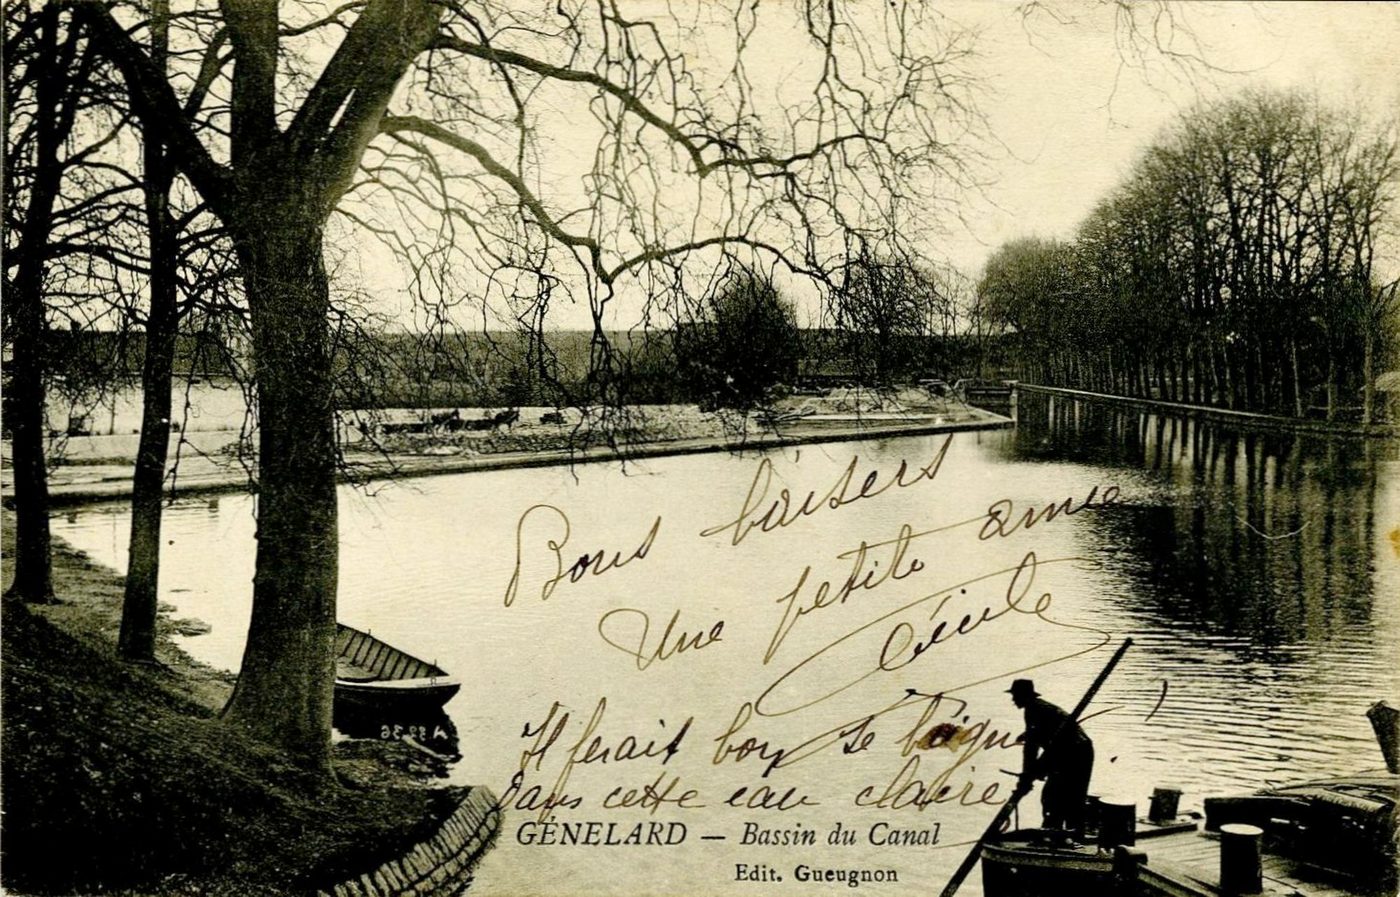 Bons baisers
Une petite amie
Cécile
Il ferait bon se baigner
Dans cette eau claire
GÉNELARD — Bassin du Canal
Edit. Gueugnon